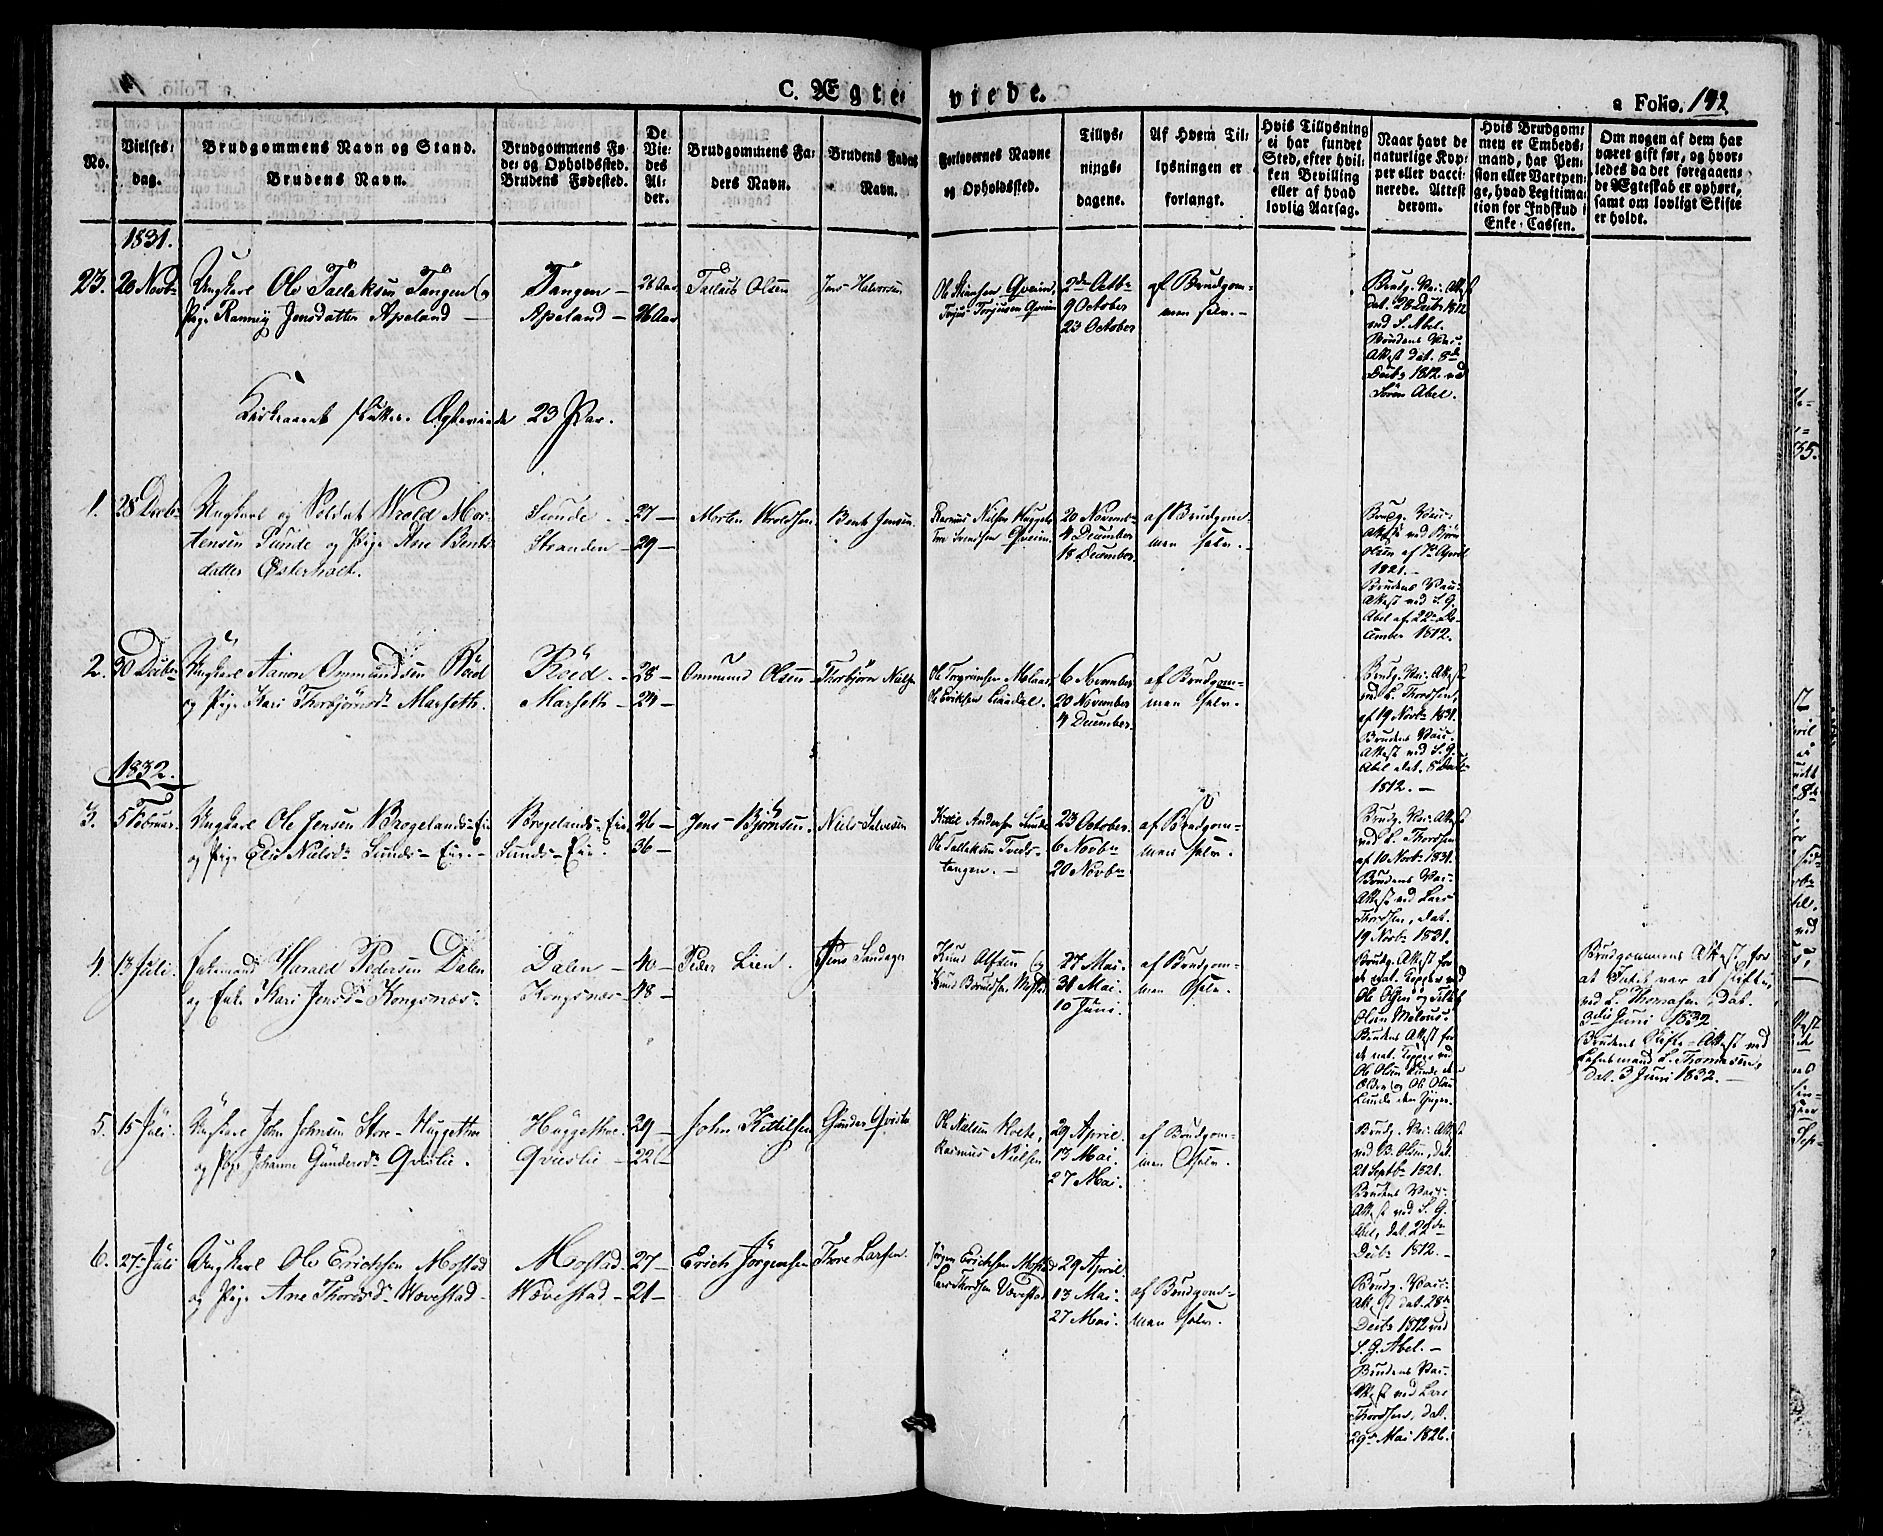 C. Ægte-
viede.
a Folio. 142
No.
Vielses-
dag.
Brudgommens Navn og Stand.
Brudens Navn.
Brudgommens Fø-
de- og Opholdssted.
Brudens Fødested.
De
Vie-
des
Al-
der.
Brudgommens Fa-
ders Navn.
Brudens Faders
Navn.
Forlovernes Navne
og Opholdssted.
Tillys-
nings-
dagene.
Af Hvem Til-
lysningen er
forlangt.
Hvis Tillysning
ei har fundet
Sted, efter hvil-
ken Bevilling
eller af hvad
lovlig Aarsag.
Naar havt de
naturlige Kop-
per eller vacci-
nerede. Attest
derom.
Hvis Brudgom-
men er Embeds-
mand, har Pen-
sion eller Vartpen-
ge, hvad Legitima-
tion for Indskud i
Enke-Cassen.
Om nogen af dem har
været gift før, og hvor-
ledes da det foregaaen-
de Ægteskab er ophørt,
samt om lovligt Skifte
er holdt.
1831.
23. 20 Novbr
Ungkarl Ole Tallaksen Tangen og
Pige Jensdatter Apeland
Tangen
Apeland
26 Aar
26 Aar
Tallak Olsen
Jens Halvorsen
Qveim,
Torjus Torjusen Qveim
2de Octbr
9 October
23 October
af Brudgom-
men selv.
Brudg. Vac. Attest
dat. 28 Decbr 1812
ved S. Abel.
Brudens Vac.
Attest dat. 8de
Decbr 1812 ved
Sören Abel.
Kirkeaaret Ægteviede 23 Par.
1. 28 Decbr
Ungkarl og Soldat Wrold Mor-
tensen Sunde og Pige Ane Bents-
datter Østerholt.
Sunde
Stranden
27
29
Morten Wroldsen
Bent Jensen
Rasmus Nielsen
Qveim.
20 Novembr
4 December
18 December.
af Brudgom-
men selv.
Brudg. Vac.
Attest ved Björn
Olsen af April
1821.
Brudens Vac.
Attest ved S. G.
Abel af 22 De-
cember 1812.
2. 30 Decbr
Ungkarl Aanon Ommundsen Röed
og Pige Kari Thorbjörnsd. Marseth.
Röed.
Marseth
28
24
Ommund Olsen
Thorbjörn Nielsen
Ole
Ole Ericksen
6 November
20 November
4 December.
af Brudgom-
men selv.
Brudg. Vac. Attest
ved L. Thordsen,
af 19 Novbr 1831.
Brudens Vac.
Attest ved S. G.
Abel dat. 8 Decbr
1812.
1832.
3. 5 Februar.
Ungkarl Ole Jensen Brogelands-Eie
og Pige Elie Nielsd. Lunds-Eie.
Brogelands-Eie
Lunds-Eie.
26
36
Jens Björnsen.
Niels Salvesen
Kittil Andersen Lunde
Ole Tallaksen Tveds-
tangen.
23 October.
6 Novbr
20 Novbr
af Brudgom-
men selv.
Brudg. Vac. Attest
ved L. Thordsen
af 10 Novbr 1831.
Brudens Vac.
Attest ved Lars
Thordsen, dat.
19 Novbr 1831.
4. 13 Juli.
Harald Pedersen Dalen
og Enke Kari Jensd. Kongsnæs.
Dalen
Kongsnæs
40
48
Peder Lien.
Jens
Knud og
Knud
27 Mai.
31 Mai.
10 Juni.
af Brudgom-
men selv.
Brudg. Attest for
de nat. Kopper ved
Ole Olsen og
Olsen
Brudens Attest for
de nat. Kopper ved
Ole Olsen Lunde den
Ældre og Ole Olsen
Lunde den Yngre.
Brudgommens Attest for
at Enke var at skifte
ved L. Thomasen, dat.
3die Juni 1832
Brudens Skifte-Attest ved
Lehnsmand L. Thomasen,
dat. 3 Juni 1832.
5. 15 Juli.
Ungkarl John Johnsen Store-Huggethre
og Pige Johanne Gundersd. Qvislie.
Huggethre.
Qvislie
29
22
John Kittilsen
Gunder Qvislie
Ole Nielsen
Rasmus Nielsen
29 April.
13 Mai.
27 Mai.
af Brudgom-
men selv.
Brudg. Vac. Attest
ved B. Olsen, dat.
21 Septbr 1821.
Brudens Vac.
Attest ved S. G.
Abel, dat. 22de
Decbr 1812.
6. 27 Juli
Ungkarl Ole Ericksen Mostad
og Pige Ane Thoresd. Wævestad
Mostad.
Wævestad
27
21
Erich Jörgensen
Thore Larsen.
Jörgen Ericksen Mostad
Lars Thordsen Vævestad
29 April.
13 Mai.
27 Mai.
af Brudgom-
men selv.
Brudg. Vac.
Attest dat. 28de
Decbr 1812 ved
S. G. Abel.
Brudens Vac.
Attest ved Lars
Thordsen, dat.
29 Mai 1826.